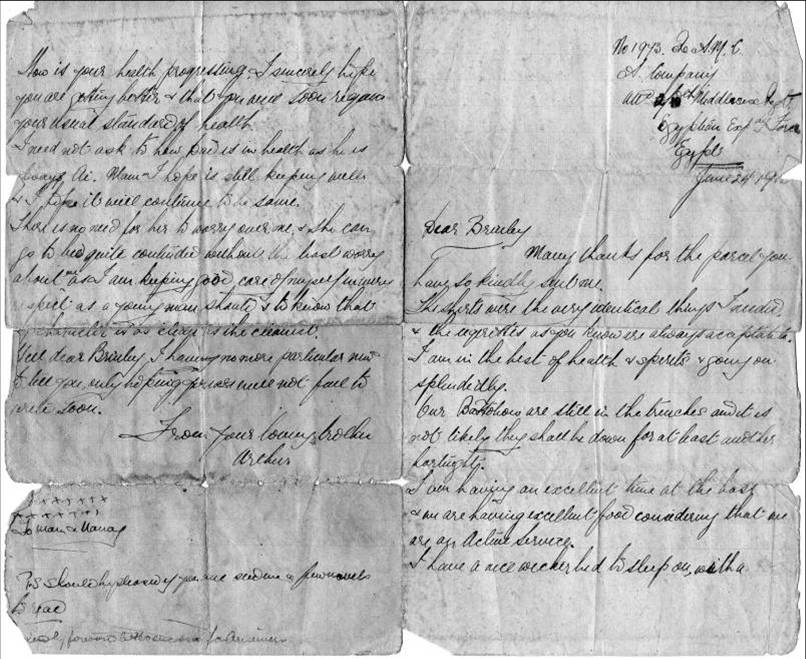 No 1973. R.A.M.C
A. Company
Att Middlesex Regt
Egyptian Exp Force
Egypt
June 24
Dear Brinley
Many thanks for the parcel you
have so kindly sent me.
The shirts were the very identical things I needed
& the cigarettes as you know are always acceptable.
I am in the best of health & spirits & going on
splendidly.
Our Battalion are still in the trenches and it is
not likely they shall be down for at least another
fortnight.
I am having an excellent time at the base
& we are having excellent food considering that we
are on Active service.
I have a nice wicker bed to sleep on, with a
How is your health progressing. I sincerely hope
you are getting better & that you will soon regain
your usual standard of health.
I need not ask to how Dad is in health as he is
always A1. Mam I hope is still keeping well
& I hope it will continue to be same.
There is no need for her to worry over me, & she can
go to bed quite contented without the least worry
about me as I am keeping good care of myself in every
respect as a young man should & to know that
character is as clear as the clearest.
Well dear Brinley I having no more particular news
to tell you, only hoping you will not fail to
write soon.
From your loving brother
Arthur
x x x x x x x
x x x x x x
To Mam & Nanny
PS Should be pleased if you send me a few novels
to read